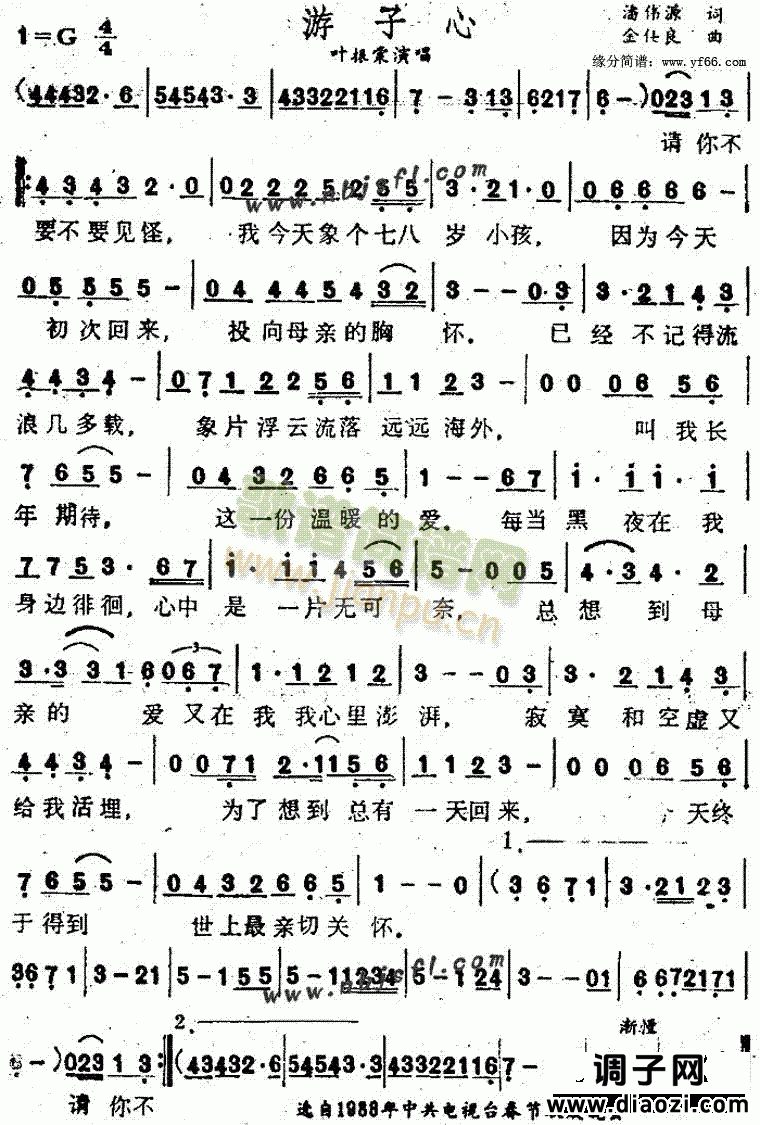 游子心
1=G 4/4
潘伟源 词
金仕良 曲
叶振棠演唱
缘分简谱：www.yf66.com
(44432·6 | 54543·3 | 43322116 | 7 - 313 | 6217 | 6 -) 02313
请你不
43432·0 | 022252555 | 3·21·0 | 06666 6 -
要不要见怪， 我今天象个七八 岁 小孩， 因为今天
05555 - | 04445432 | 3 - - 0·3 | 3·2143
初次回来， 投向母亲的胸 怀． 已经 不记得流
4434 - | 07122556 | 1123 - | 00 06 56
浪几多载， 象片浮云流落 远远 海外， 叫我长
7655 - | 04326 65 | 1 - - 67 | 1· 11· 1
年 期待， 这一份 温暖 的 爱． 每当 黑 夜在 我
7753· 67 | 1· 11456 | 5 - 005 | 4·34·2
身边徘徊，心中 是 一片无可 奈， 总想 到 母
3·3316067 | 1·1212 | 3 - - 03 | 3·2143
亲的 爱 又在 我 我心里澎 湃， 寂寞 和空虚又
4434 - | 0071 2·1156 | 1123 - | 00 06 56
给我活埋， 为了 想到 总有 一天回来， 一天终
1.
7655 - | 0432665 | 1 - - 0 | (3671 | 3·2123
于得到 世上最亲切关 怀．
3671 | 3 - 21 | 5 - 155 | 5 - 11234 | 5 - 124 | 3 - - 01 | 6672171
www.abjsfl.com
渐慢
2.
6 -) 02313 :| (43432·6 | 54543·3 | 43322116 | 7 -
请 你不
选自1988年中共电视台春节
歌谱简谱网
www.jianpu.cn
调子网
www.diaozi.com